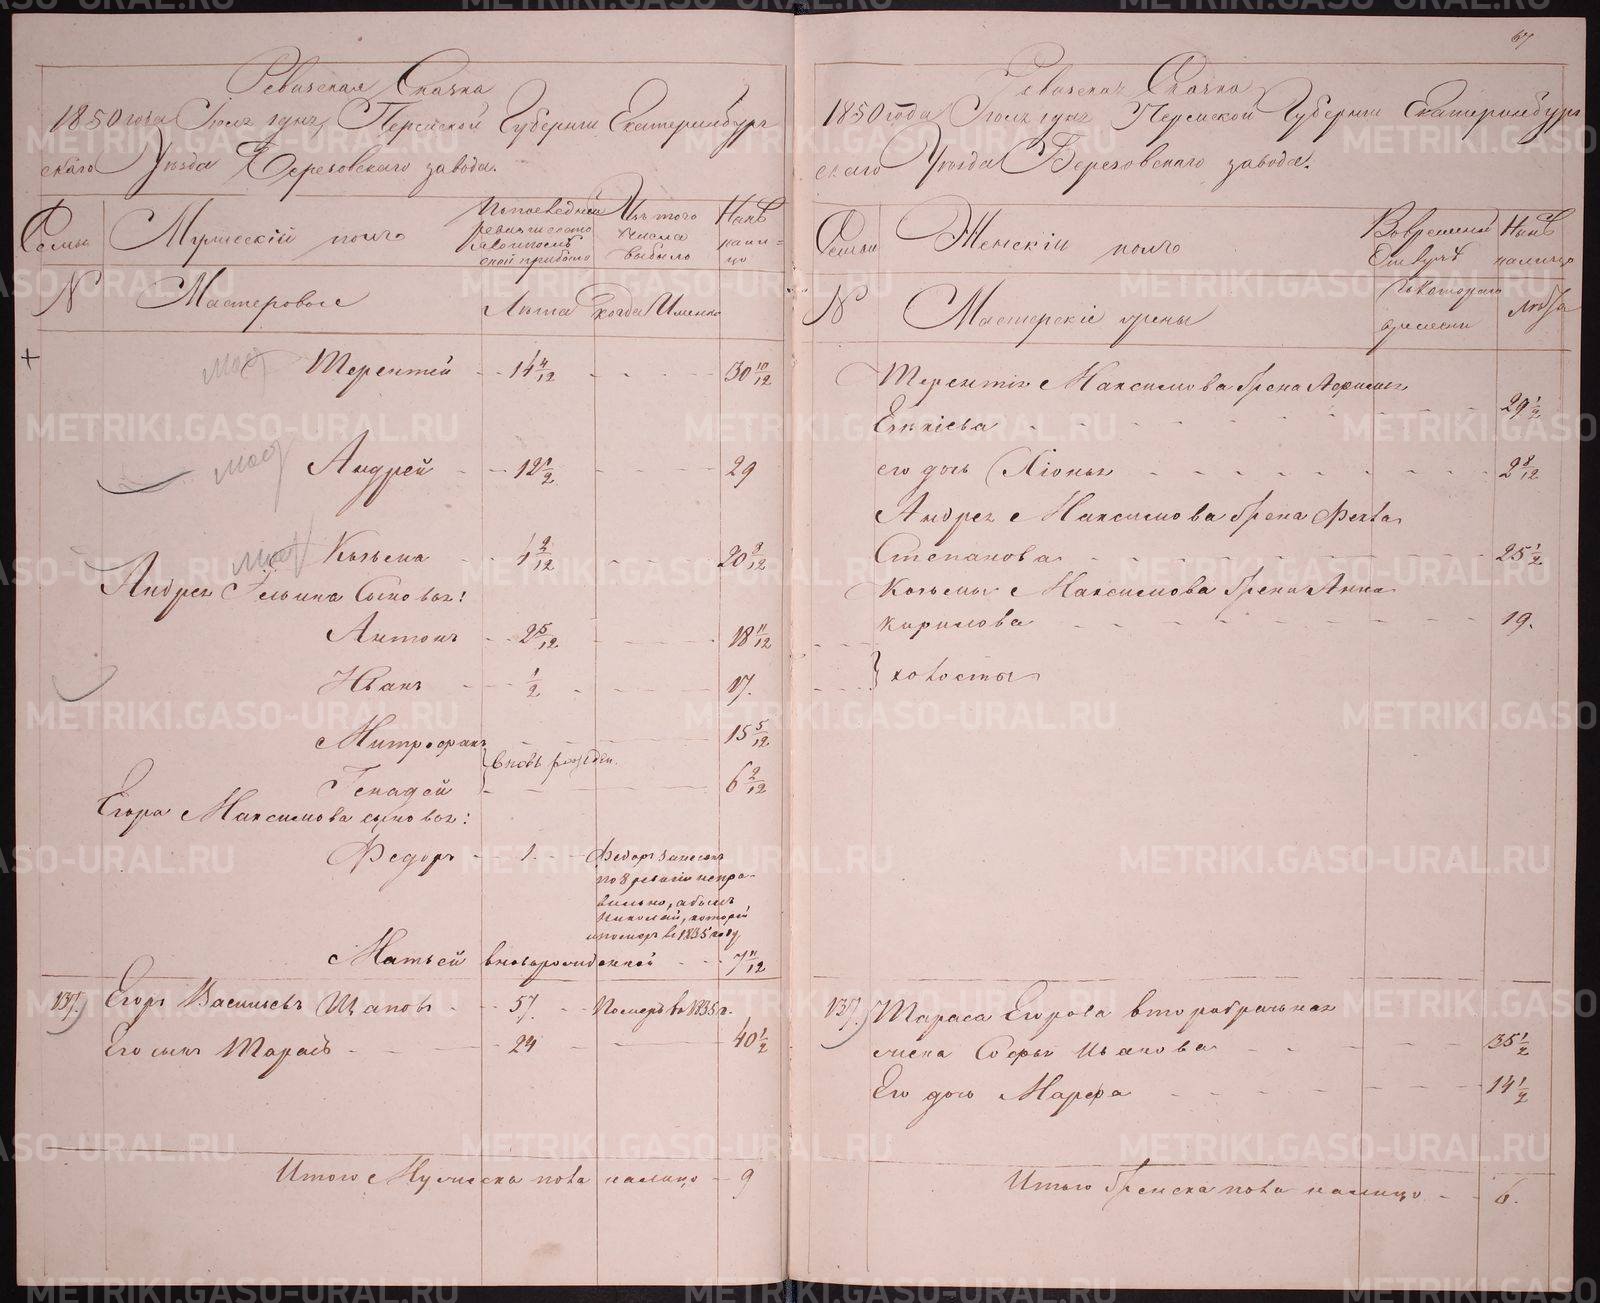 67
Ревизская Сказка
1850 года Июль дня, Пермской Губернии Екатеринбург
скаго Уезда Березовскаго завода.
Семьи
Мужескій полъ
По последней ревизіи состояло и после оной прибыло
Изъ того числа выбыло
Ныне на лицо
N
Мастеровые
Лета
когда Именно
+ Терентей - - 14 4/12 - - - - 30 10/12
Андрей - - 12 1/2 - - - - 29
Козьма - - 4 2/12 - - - - 20 9/12
Андрея Ильина Сыновья:
Антонъ - - 2 5/12 - - - - 18 11/12
Иванъ - - 1/2 - - - - 17.
Митрофанъ - - - - 15 5/12
вновь рожден.
Генадей - - - - 6 2/12
Егора Максимова сыновья:
Федоръ - - 1. - - Федоръ записанъ
по 8 ревизіи непра-
вильно, а былъ
Николай, которой
и померъ въ 1835 году
Матвей вновьрожденной - - - 7 11/12
137.) Егоръ Васильевъ Щаповъ - - 57. - Померъ в 1835 г.
Его сынъ Тарасъ - - - 24 - - - 40 1/2
Итого Мужеска пола налицо - 9
Ревизская Сказка
1850 года Июль дня Пермской Губернии Екатеринбург
скаго Уезда Березовскаго завода.
Семьи
Женскій полъ
Во временной Отлучке
Ныне налицо
N
Мастерскіе жены
съ котораго времени
лета
Терентія Максимова жена
- - - - 29 1/2
его дочь Хіонья - - - - 2 8/12
Андрея Максимова жена Фекла
Степанова - - - - 25 1/2
Козьмы Максимова жена Анна
Кирилова - - - - 19.
} холосты
137.) Тараса Егорова второбрачная
жена Софья Иванова - - - - 35 1/2
Его дочь Марфа - - - - 14 1/2
Итого Женска пола налицо - - 6.
METRIKI.GASO-URAL.RU